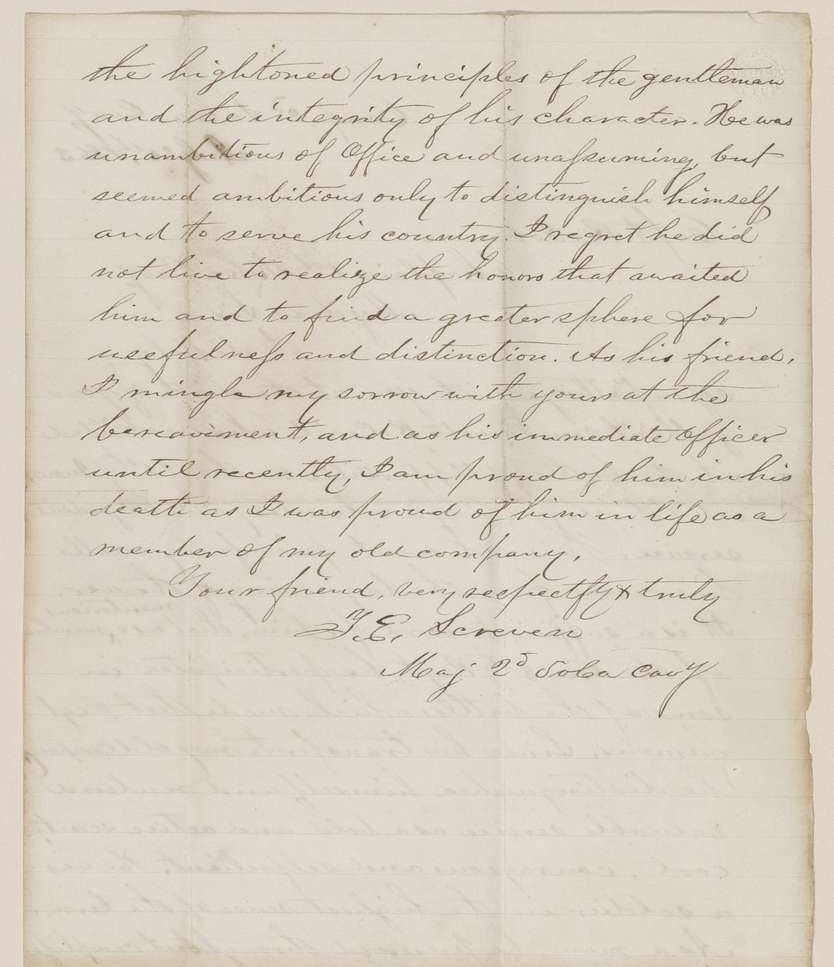 the hightoned principles of the gentleman
and the integrity of his character. He was
unambitious of Office and unassuming, but
seemed ambitious only to distinguish himself
and to serve his country. I regret he did
not live to realize the honors that awaited
him and to find a greater sphere for
usefulness and distinction. As his friend,
I mingle my sorrow with yours at the
bereavement, and as his immediate Officer
until recently, I am proud of him in his
death as I was proud of him in life as a
member of my old company.
Your friend, very respectfly & truly
T. E. Screven
Maj 2d So Ca Cavy